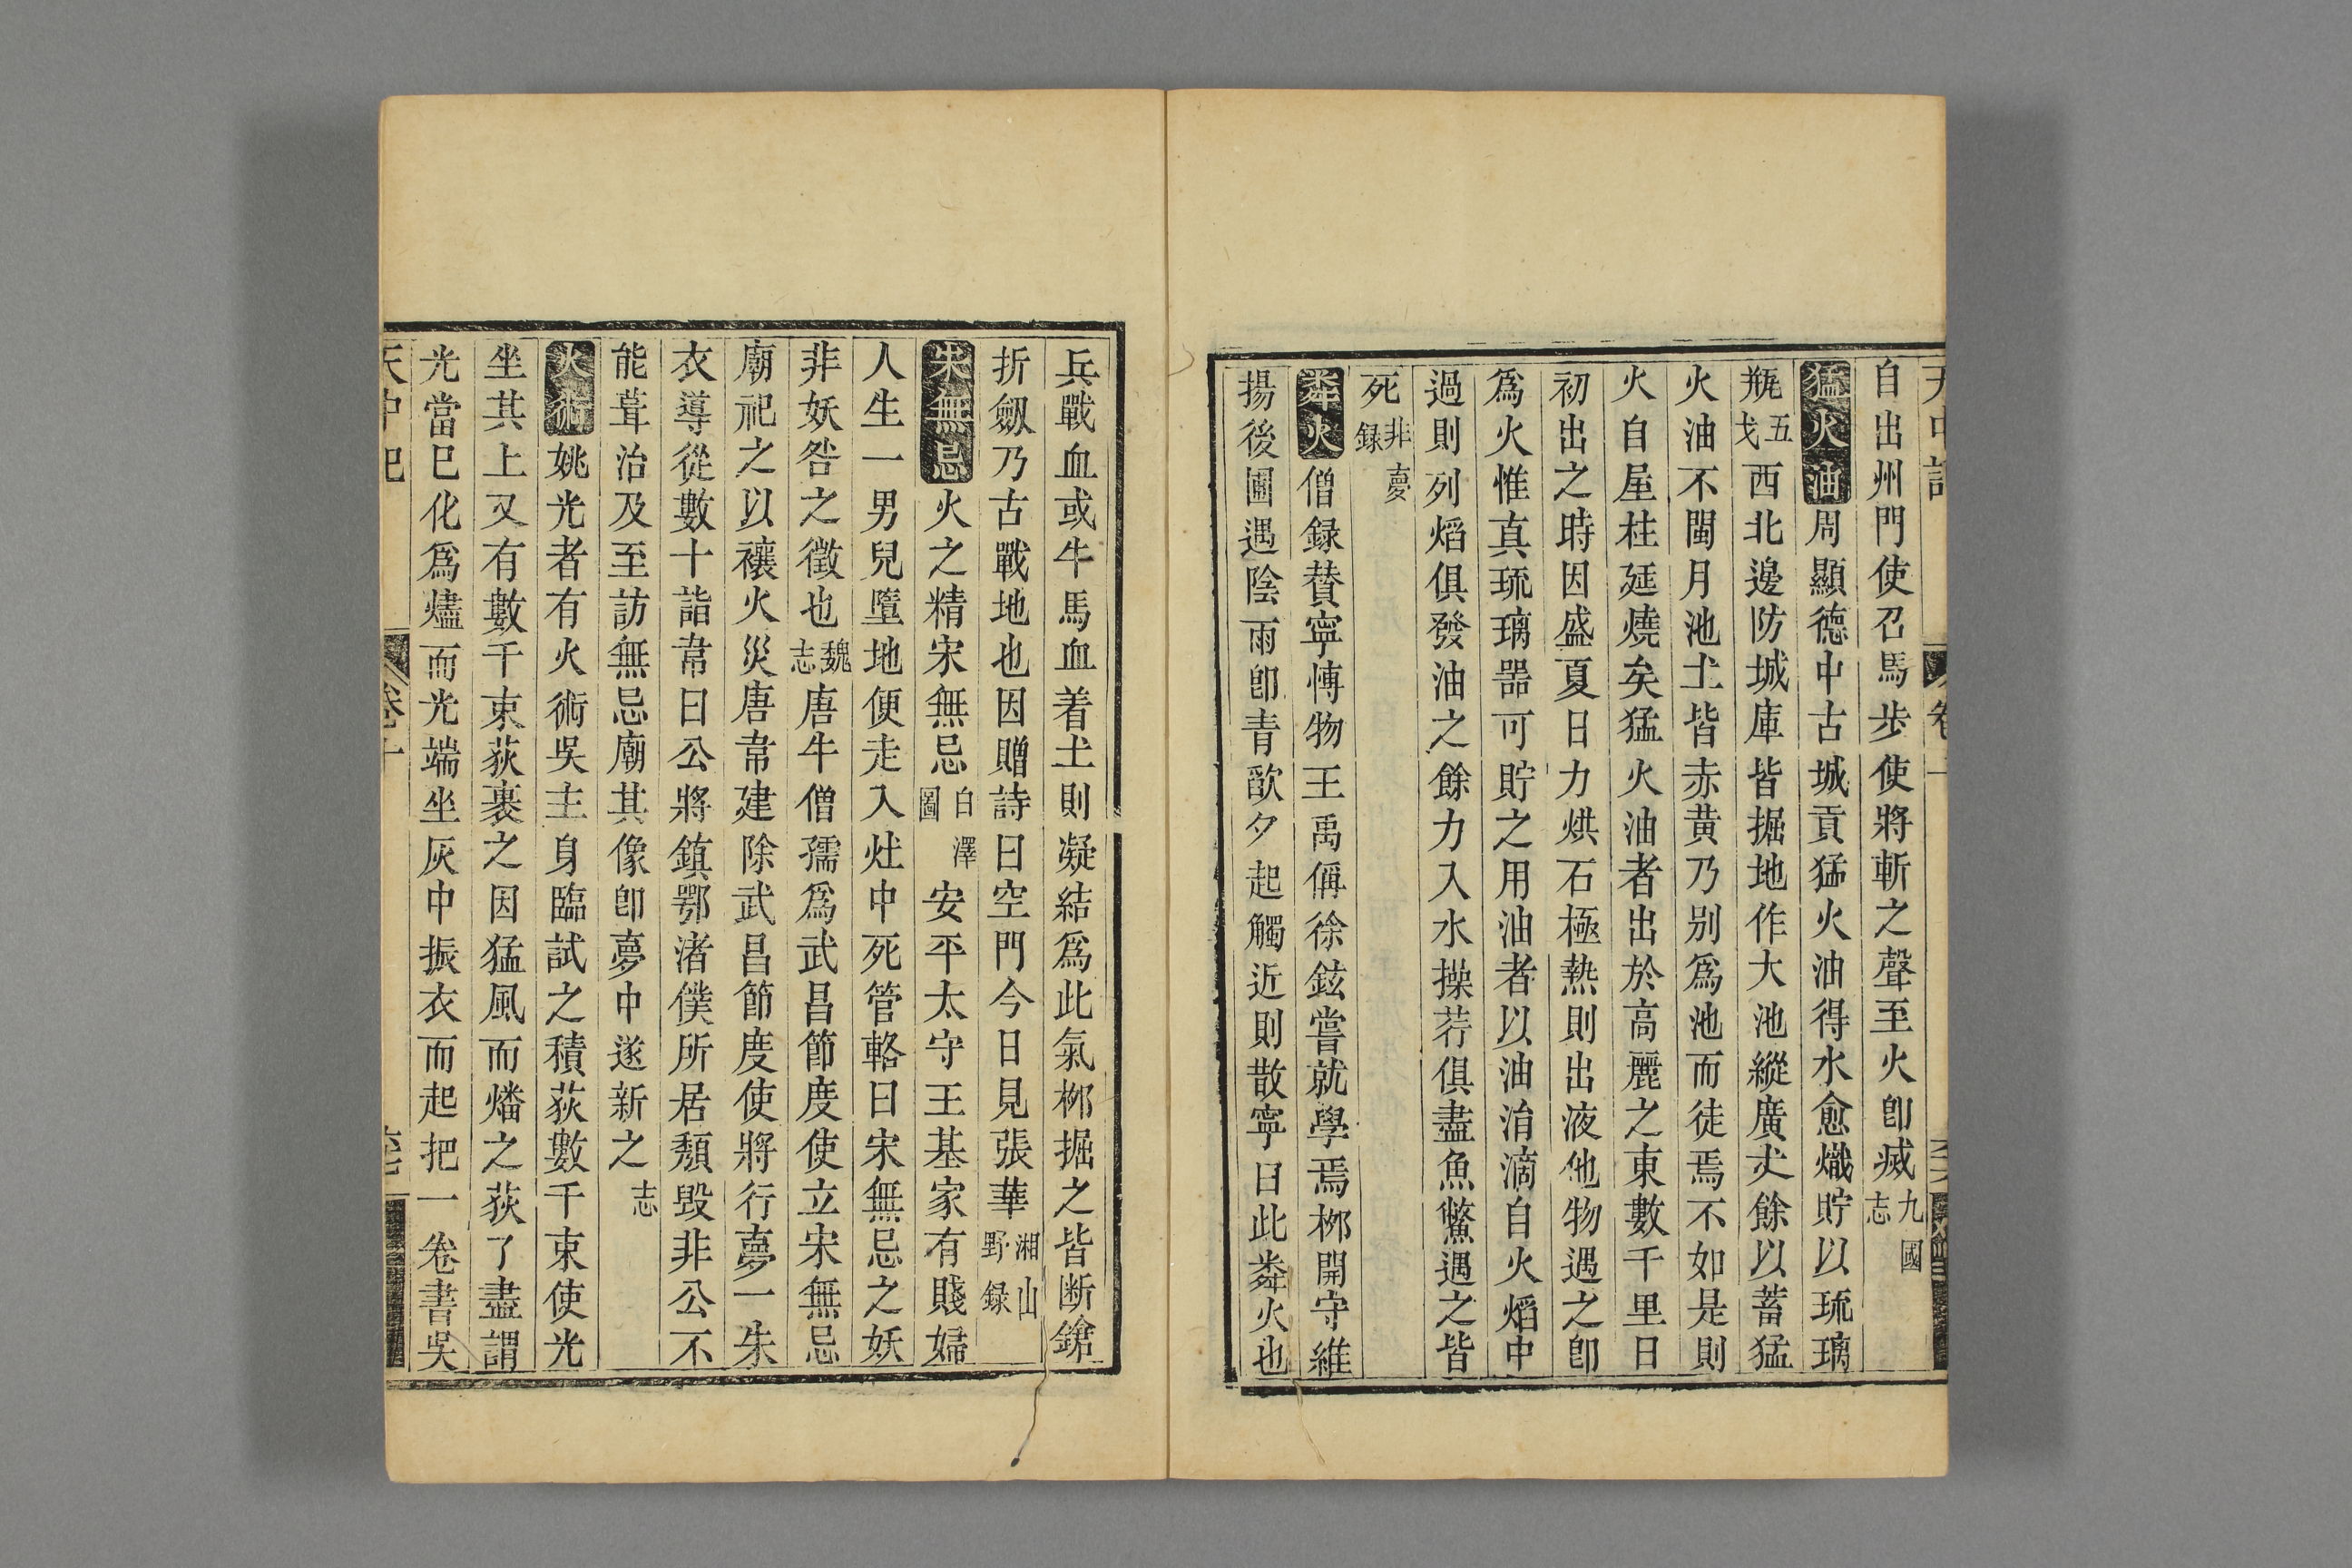 自出州門使召馬步使將斬之聲至火卽滅九國志
猛火油周顯德中古城貢猛火油得水愈熾貯以琉璃
瓶五戈西北邊防城庫皆掘地作大池縱廣丈餘以蓄猛
火油不閱月池土皆赤黄乃别爲池而徙焉不如是則
火自屋柱延燒矣猛火油者出於高麗之東數千里日
初出之時因盛夏日力烘石極熱則出液他物遇之卽
爲火惟真琉璃器可貯之用油者以油涓滴自火熖中
過則列熖俱發油之餘力入水操荇俱盡魚鱉遇之皆
死非夢録
粦火僧録賛寧博物王禹偁徐鉉嘗就學焉栁開守維
揚後圃遇陰雨卽青歊夕起觸近則散寧曰此粦火也
兵戰血或牛馬血着土則凝結爲此氣栁掘之皆断鎗
折劔乃古戰地也因贈詩曰空門今日見張華湘山野録
宋無忌火之精宋無忌白澤圖安平太守王基家有賤婦
人生一男兒墮地便走入灶中死管輅曰宋無忌之妖
非妖咎之徵也魏志唐牛僧孺爲武昌節度使立宋無忌
廟祀之以禳火災唐韋建除武昌節度使將行夢一朱
衣導從數十詣韋曰公將鎮鄂渚僕所居頽毁非公不
能葺治及至訪無忌廟其像卽夢中遂新之志
火術姚光者有火術吳主身臨試之積荻數千束使光
坐其上又有數千束荻裹之因猛風而燔之荻了盡謂
光當已化爲燼而光端坐灰中振衣而起把一卷書吳
天中記
卷十